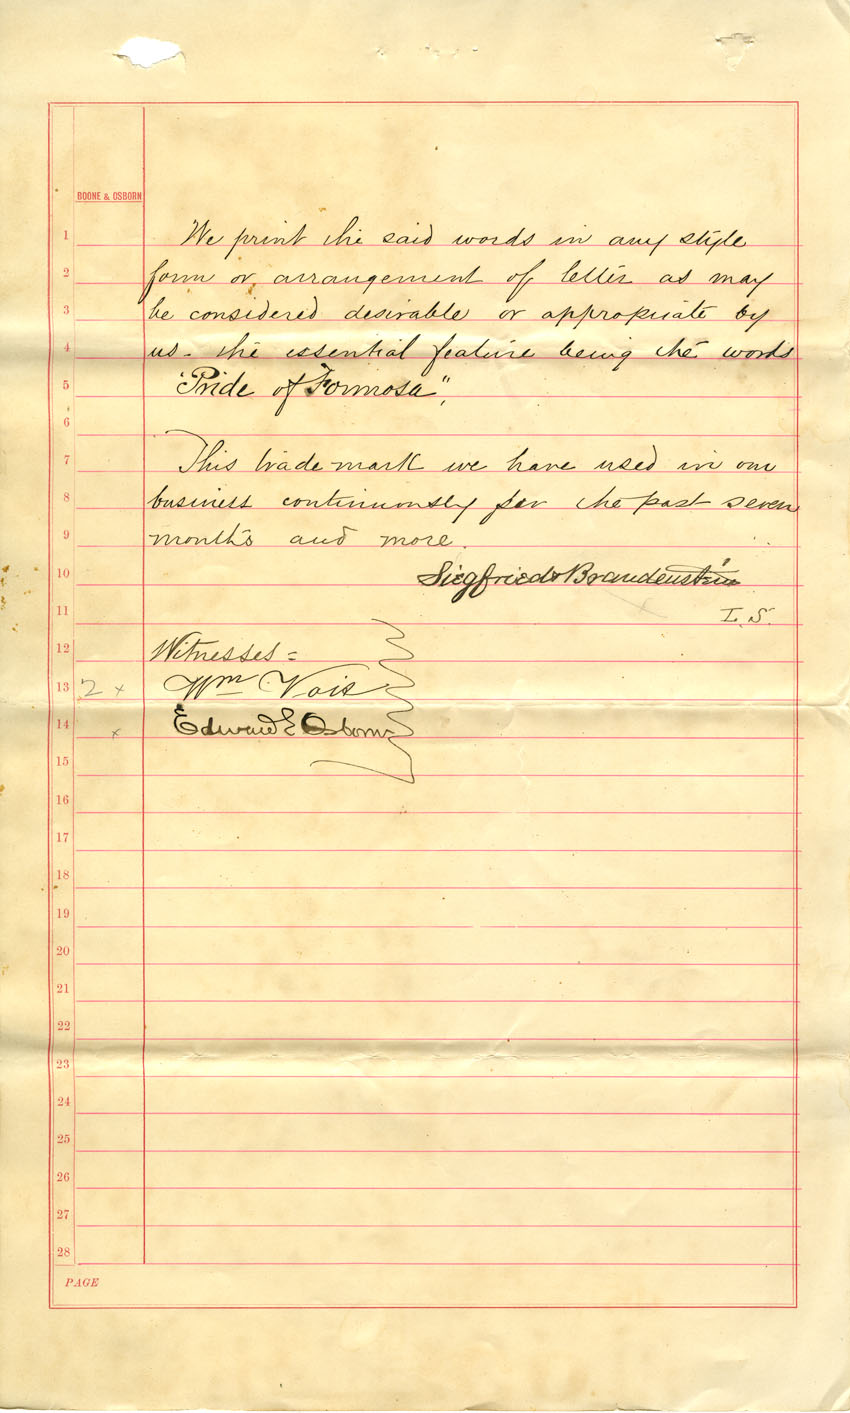 BOONE & OSBORN
1 We print the said words in any style
2 form or arrangement of letter as may
3 be considered desirable or appropriate by
4 us - the essential feature being the words
5 "Pride of Formosa",
6
7 This trade mark we have used in our
8 business continuously for the past seven
9 months and more.
10 Siegfried & Brandenstein
11 L. S.
12 Witnesses =
13 2 x Wm Vois
14 x Edward E Osborn
15
16
17
18
19
20
21
22
23
24
25
26
27
28
PAGE